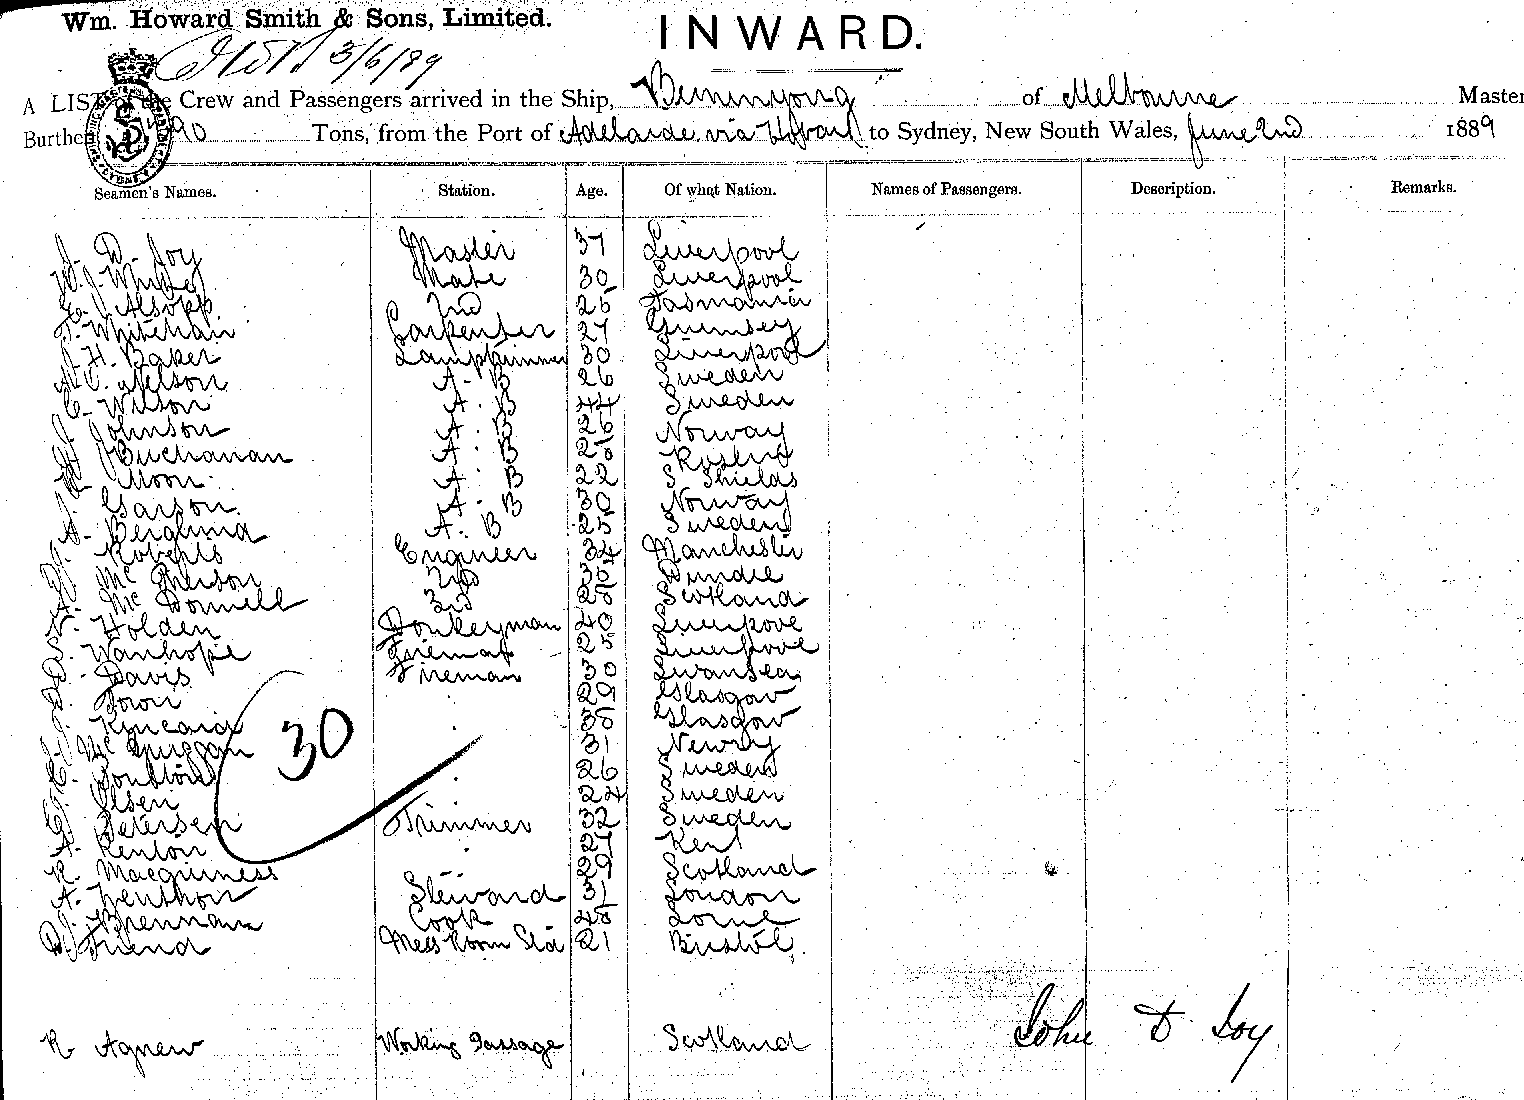 Wm. Howard Smith & Sons, Limited.
INWARD.
3/6/89
A LIST of the Crew and Passengers arrived in the Ship, Beninyong of Melbourne Master
Burthen Tons, from the Port of Adelaide via to Sydney, New South Wales, June 2nd 1889
Seamen's Names. Station. Age. Of what Nation. Names of Passengers. Description. Remarks.
J. D. Joy Master 37 Liverpool
W. J. White Mate 30 Liverpool
Alsopp 2nd 25 Tasmania
Whitehair Carpenter 27 Guernsey
H. Baker Lamptrimmer 30 Liverpool
Nelson A. B 26 Sweden
C. Wilson A. B 44 Sweden
Johnson A. B 26 Norway
Buchanan A. B
Moon A. B 22 S. Shields
Garson A. B 30 Norway
A. Berglund A. B 25 Sweden
Roberts Engineer 34 Manchester
McPherson 2nd Dundee
McDonnell 3rd Scotland
Holden Donkeyman 40 Liverpool
Wanhope Fireman 25 Liverpool
Davis Fireman 30 Swansea
Down 29 Glasgow
Kyncaid Glasgow
McGuiggan 31 Newry
26 Sweden
Olsen 24 Sweden
Petersen Trimmer 32 Sweden
A. Renton 27 Kent
R. Macguiness 29 Scotland
A. Steward 31 London
Brennan Cook Lorne
Friend Mess Room Std 21 Bristol
30
R Agnew Working Passage Scotland
John D Joy